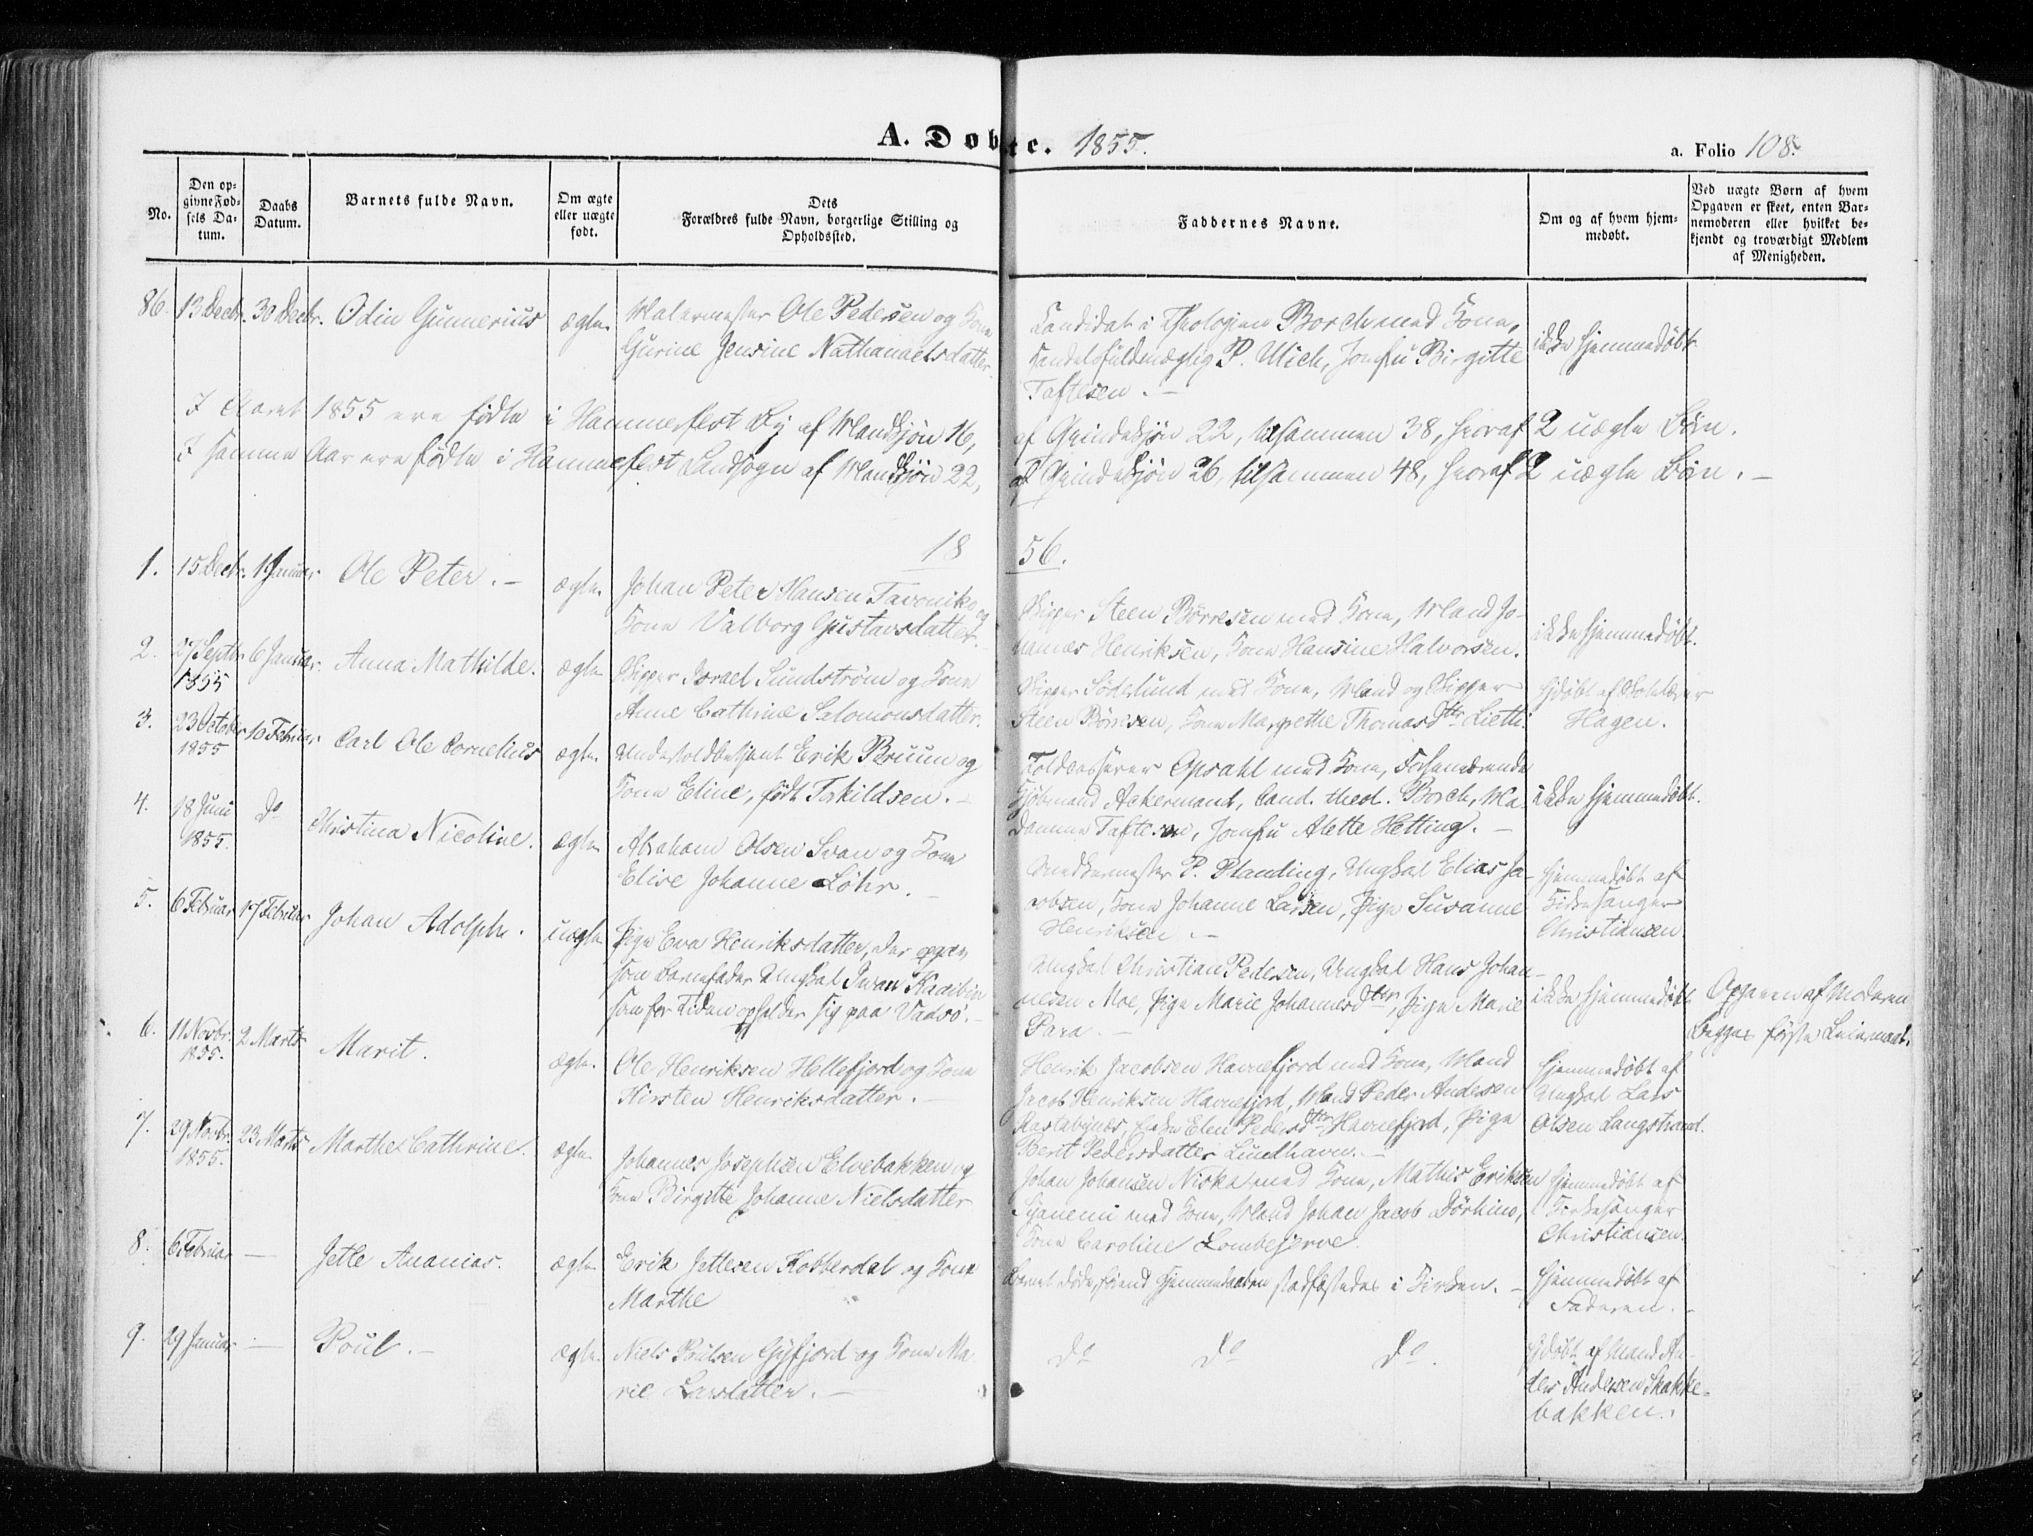 A. Døbte. 1855.
a. Folio 108.
No.
Den opgivne Fødsels Datum.
Daabs Datum.
Barnets fulde Navn.
Om ægte eller uægte født.
Dets Forældres fulde Navn, borgerlige Stilling og Opholdssted.
Faddernes Navne.
Om og af hvem hjemmedøbt.
Ved uægte Børn af hvem Opgaven er skeet, enten Barnemoderen eller hvilket bekjendt og troværdigt Medlem af Menigheden.
86. 13 Decbr. 30 Decbr. Odin Gunnerius ægte. Malermester Ole Pedersen og Kone
Gurine Jensine Nathanaelsdatter.
Candidat i Theologien Borch med Kone,
Handelsfuldmægtig P. Ulich, Jomfru Birgitte
Taftesen. -
ikke hjemmedøbt
I Aaret 1855 ere fødte i Hammerfest By af Mandkjøn 16, af Qvindekjøn 22, tilsammen 38, hvoraf 2 uægte Børn.
I samme Aar ere fødte i Hammerfest Landsogn af Mandkjøn 22, af Qvindekjøn 26, tilsammen 48, hvoraf 2 uægte Børn. -
1856.
1. 15 Decbr. 1 Januar Ole Peter. - ægte. Johan Peter Hansen Tavoniko og
Kone Valborg Gustavsdatter.
Skipper Steen Børresen med Kone, Mand Jo-
hannes Henriksen, Kone Hansine Halvorsen.
ikke hjemmedøbt.
2. 27 Septbr 1855 6 Januar. Anna Mathilde. ægte Skipper Israel Sundstrøm og Kone
Anne Cathrine Salomonsdatter.
Skipper Söderlund med Kone, Mand og Skipper
Steen Børresen, Kone Margrethe Thomasdtr Lietti
hjdøbt af
Hagen.
3. 23 October 1855 10 Februar Carl Ole Cornelius ægte. Undertoldbetjent Erik Bruun og
Kone Eline, født Torkildsen. -
Toldcasserer Opsahl med Kone, Forhenværende
Kjøbmand Ackermand, Cand. theol. Borch, Ma-
damme Taftesen, Jomfru Alette Hetting. -
ikke hjemmedøbt.
4. 18 Juni 1855. do Christina Nicoline. ægte Abraham Olsen Svan og Kone
Elise Johanne Löhr. -
Snedkermester P. Planding, Ungkal Elias Ja-
cobsen, Kone Johanne Larsen, Pige Susanne
Henriksen. -
hjemmedøbt af
Kirkesanger
Christiansen.
5. 6 Februar 17 Februar Johan Adolph. uægte Pige Eva Henriksdatter, der opgav
som Barnefader Ungkal Iwan Kaaibin
som for Tiden opholder sig paa Vadsø. -
Ungkal Christian Pedersen, Ungkal Hans Johan-
nesen Moe, Pige Marie Johannesdtr, Pige Marie
Para. -
ikke hjemmedøbt
Opgaven af Moderen
Begges første Leiermaal.
6. 11 Novbr. 1855. 2 Marts Marit. ægte. Ole Henriksen Hellefjord og Kone
Kirsten Henriksdatter. -
Henrik Jacobsen Havnefjord med Kone, Mand
Jacob Henriksen Havnefjord, Mand Peder Andersen
Elen Pedersdtr Havnefjord, Pige
Berit Pedersdatter Lundhavn. -
hjemmedøbt af
Ungkal Lars
Olsen Langstrand.
7. 29 Novbr. 1855. 23 Marts Marthe Cathrine. ægte. Johannes Josephsen Elvebakken og
Kone Birgitte Johanne Nielsdatter
Johan Johansen Niska med Kone, Mathis Eriksen
med Kone, Mand Johan Jacob
Kone Caroline Lombejerve.
hjemmedøbt af
Kirkesanger
Christiansen.
8. 6 Februar — Jetle Ananias. ægte Erik Jetlesen Kobberdal og Kone
Marthe
Barnet døde, førend Hjemmedaaben stadfæstedes i Kirken. -
hjemmedøbt af
Faderen. -
9. 29 Januar — Poul. - ægte. Niels Poulsen Gyfjord og Kone Ma-
rie Larsdatter. -
do do do.
hjdøbt af Mand An-
ders Andersen Skakke-
bakken.